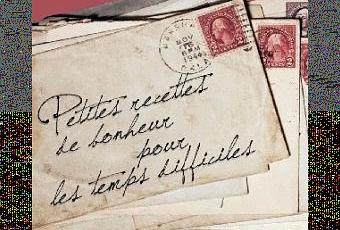 NOV
1944
Petites recettes
de bonheur
pour
les temps difficiles